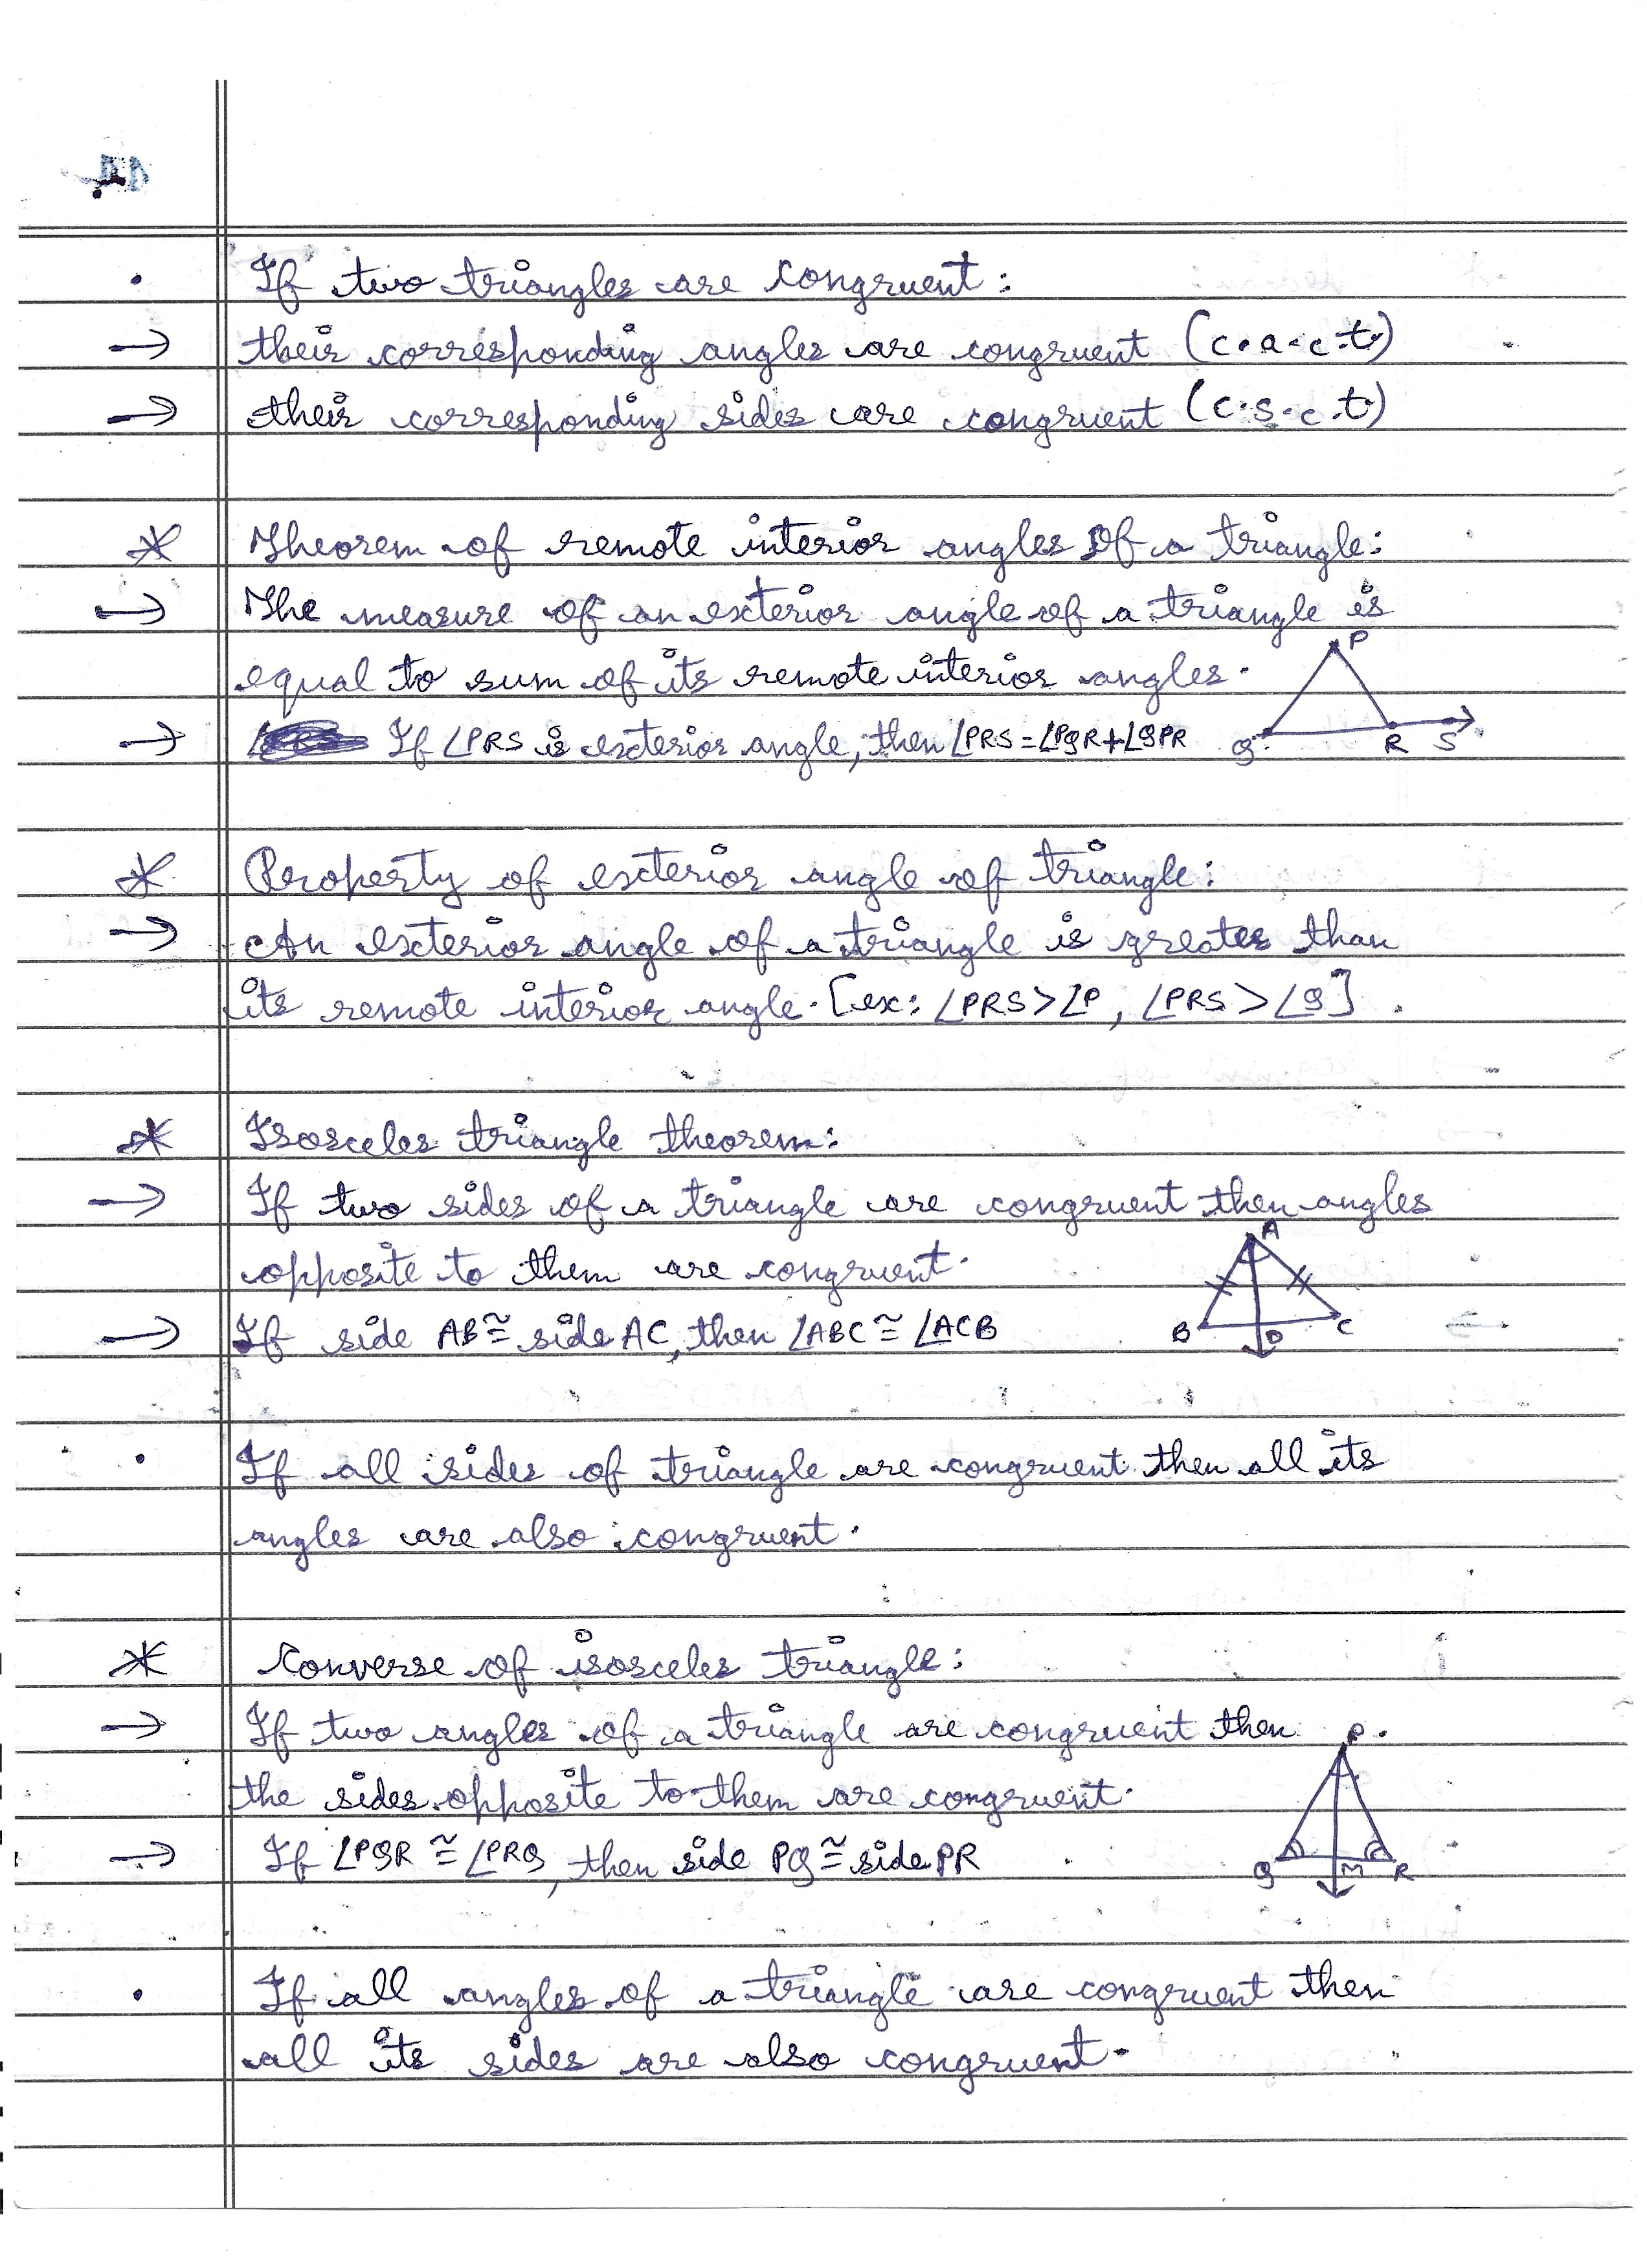 • If two triangles are congruent:
→ their corresponding angles are congruent (c.a.c.t.)
→ their corresponding sides are congruent (c.s.c.t)
* Theorem of remote interior angles of a triangle:
→ The measure of an exterior angle of a triangle is
equal to sum of its remote interior angles.
→ If ∠PRS is exterior angle, then ∠PRS = ∠PQR + ∠QPR
P
Q R S
* Property of exterior angle of triangle:
→ An exterior angle of a triangle is greater than
its remote interior angle. [ex: ∠PRS > ∠P, ∠PRS > ∠Q]
* Isosceles triangle theorem:
→ If two sides of a triangle are congruent then angles
opposite to them are congruent.
→ If side AB ≅ side AC, then ∠ABC ≅ ∠ACB
A
B D C
• If all sides of triangle are congruent then all its
angles are also congruent.
* Converse of isosceles triangle:
→ If two angles of a triangle are congruent then
the sides opposite to them are congruent.
→ If ∠PQR ≅ ∠PRQ, then side PQ ≅ side PR
P
Q M R
• If all angles of a triangle are congruent then
all its sides are also congruent.